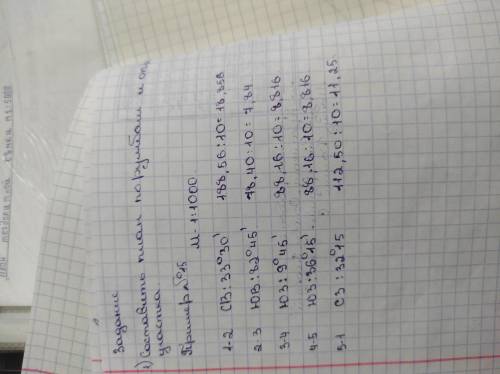 Задание
1) Составить план по румбам и оп.
участка
Пример №15
М- 1:1000
1-2 СВ: 33°30' 188,56:10= 18,858
2 3 ЮВ: 82°45' 78,40:10= 7,84
3-4 ЮЗ: 9°45' 88,16:10= 8,816
4-5 ЮЗ: 36°15' 86,16:10= 8,616
5-1 СЗ: 32°15 112,50:10= 11,25